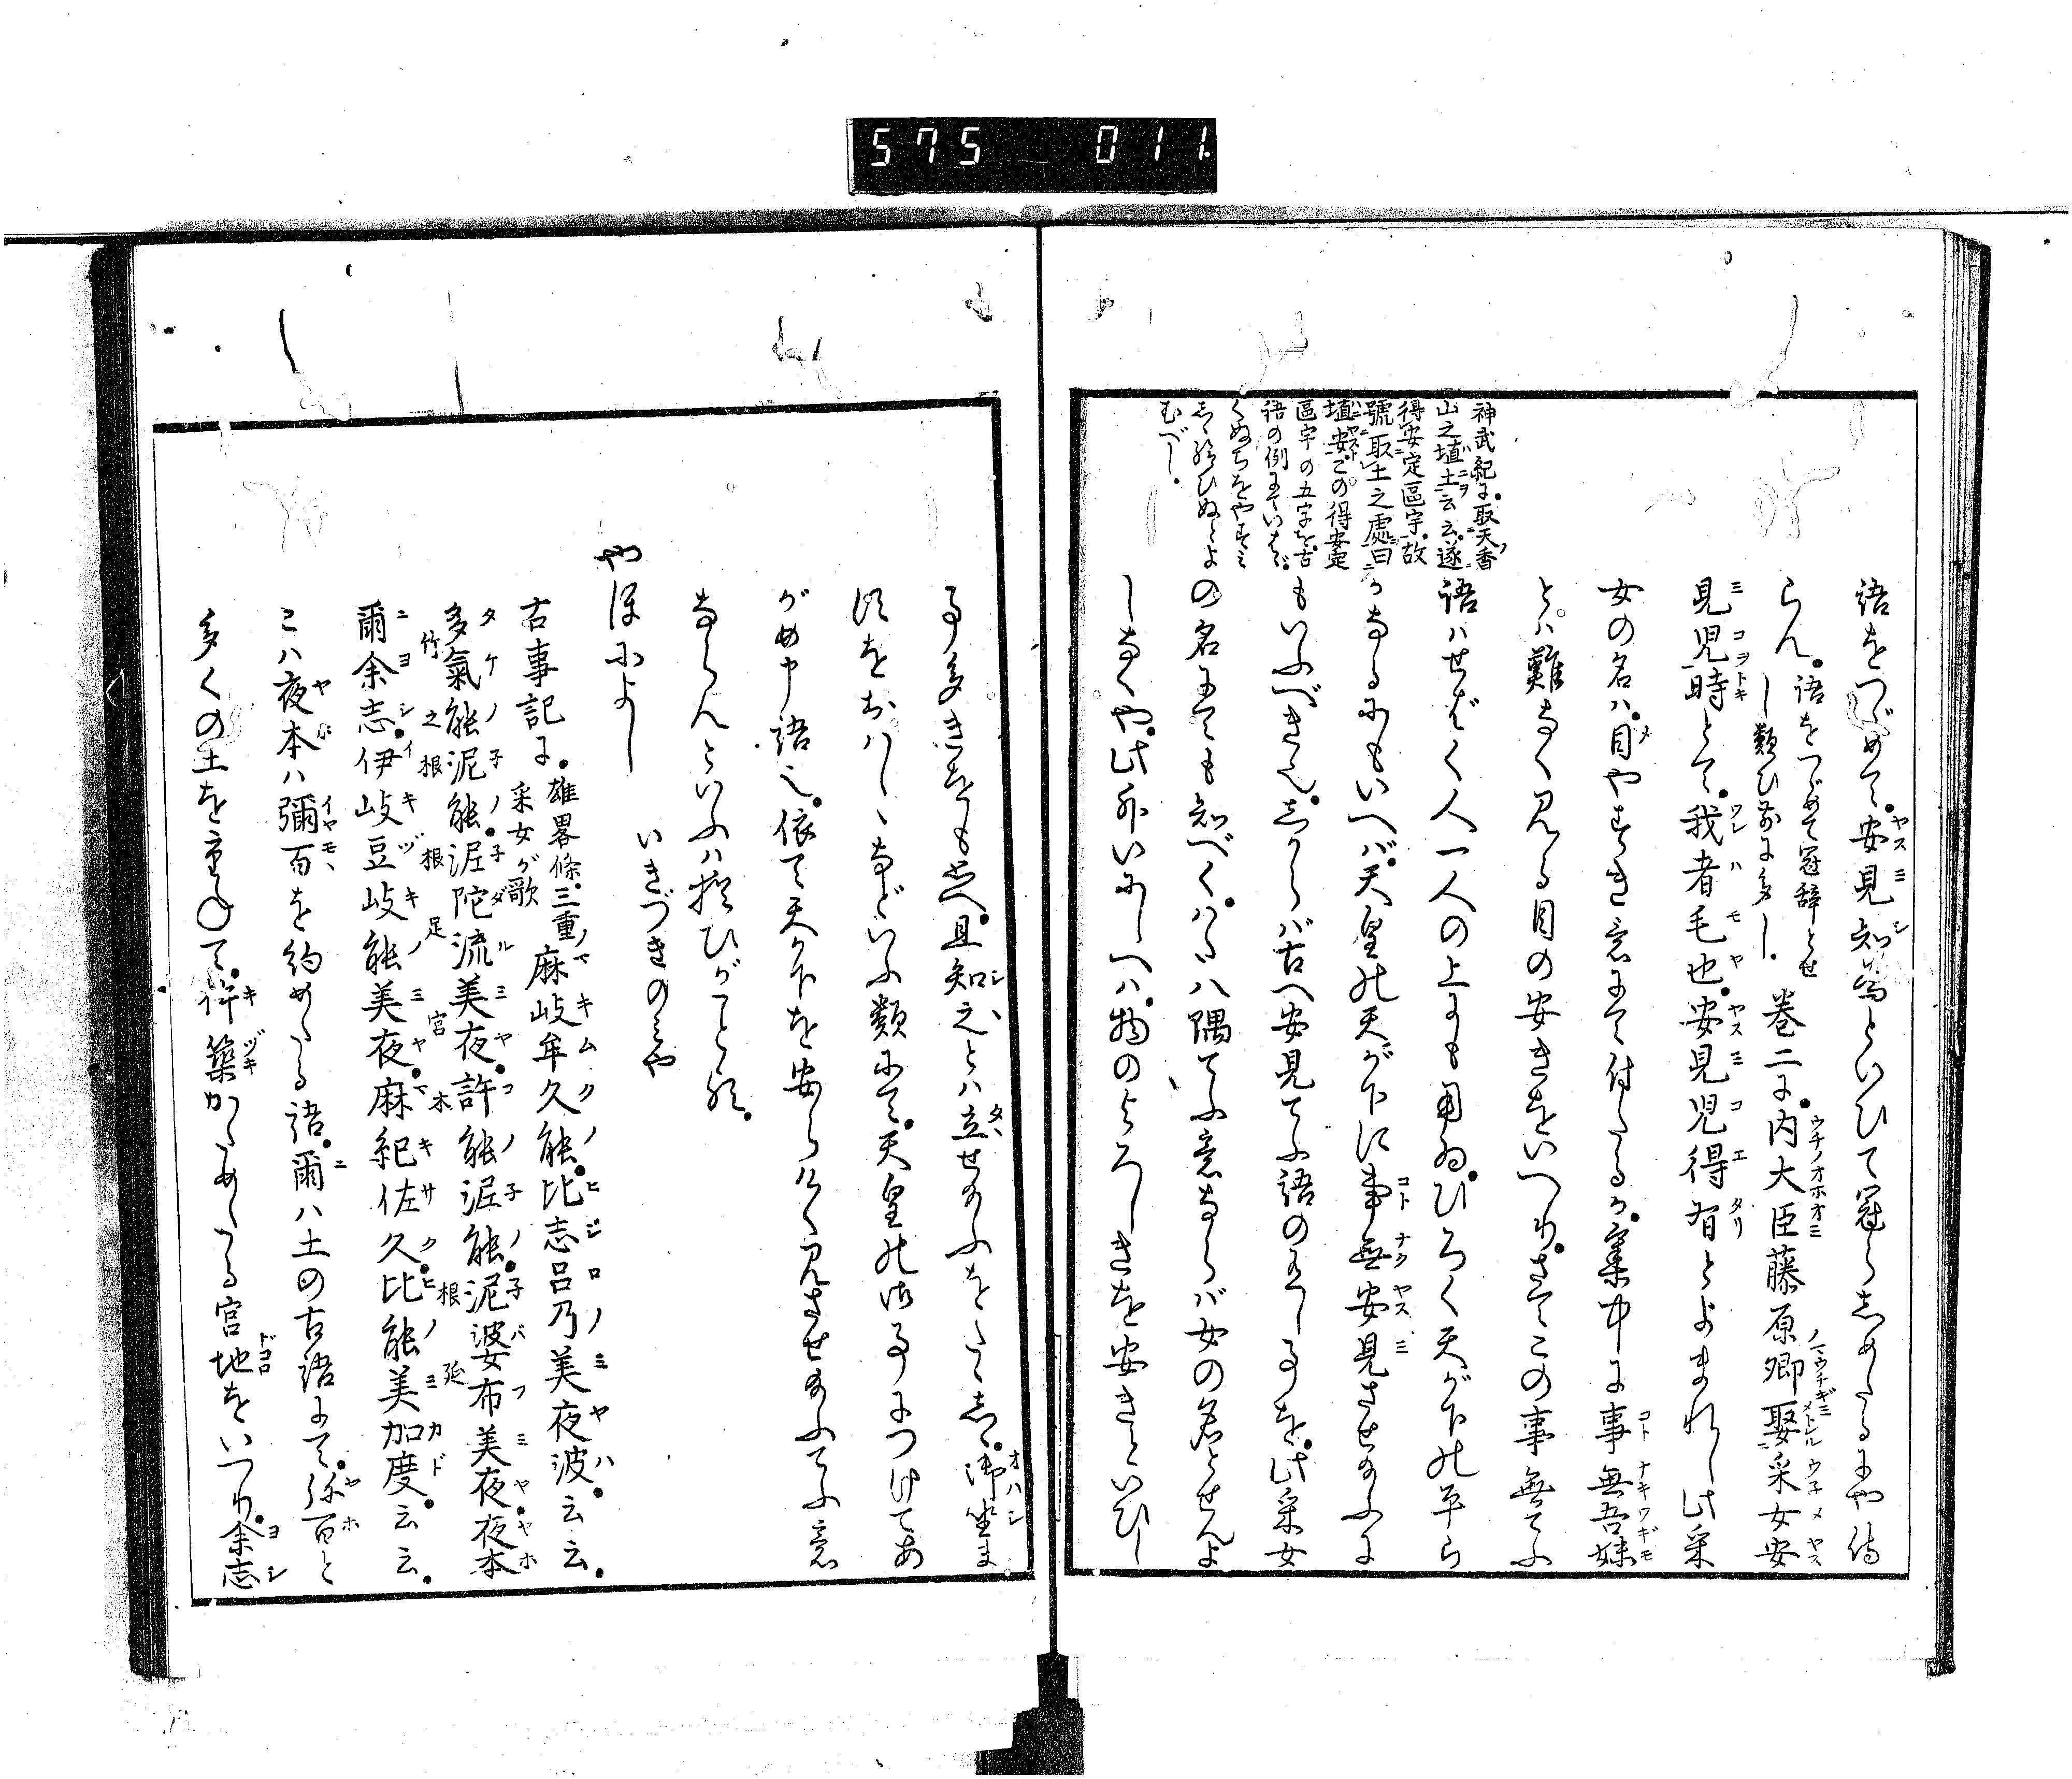 575 011
語をつゞめて、安見知爲といひて冠らしめたるにや侍
らん。語をつゞめて冠辞とせ
し類ひ前に多し。巻二に、内大臣藤原卿娶采女安
見児時とて、我者毛也安見児得有とよまれし此采
女の名は、目やすき意にて付たるか、集中に事無吾妹
とは難なく見る目の安きをいへり、さてこの事無てふ
語はせばく人一人の上にも用ゐ、ひろく天が下の平ら
かなるにもいへば、天皇の天が下に事無安見させ給ふに
もいふべきなり、しからば古へ安見てふ語の有し事を、此采女
の名にても知べく、はた八隅てふ意ならば女の名とせんよ
しなくや、此外いにしへは、物のよろしきを安きといひし
神武紀に、取天香
山之埴土云云、遂
得安定區宇、故
號取土之處曰
埴安、この得安定
區宇の五字を、古
語の例にていはゞ、
くぬちをやすみ
しゝ給ひぬとよ
むべし。
事多きをも思へ、且知之、とは立せ給ふをたゝし、御坐ま
すをおはしゝなどいふ類にて、天皇の御事につけてあ
がめ申語也、依て天が下を安らけく見させ給ふてふ意
ならんといふは推ひがことぞ。
やほによし
いきづきのみや
古事記に、雄畧條、三重
采女が歌 麻岐牟久能、比志呂乃美夜波、云云、
多氣能泥能、泥陀流美夜、許能泥能、泥婆布美夜、夜本
爾余志、伊岐豆岐能美夜、麻紀佐久、比能美加度、云云、
こは夜本は彌百を約めたる語、爾は土の古語にて、彌百と
多くの土を重ねて、杵築かためたる宮地をいへり、余志